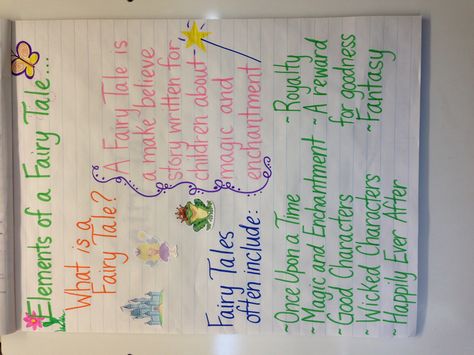 Elements of a Fairy Tale...
What is a
Fairy Tale?
A Fairy Tale is
a make believe
story written for
children about
magic and
enchantment
Fairy Tales
often include:
~Once Upon a Time
~Magic and Enchantment
~Good Characters
~Wicked Characters
~Happily Ever After
~Royalty
~A reward
for goodness
~Fantasy